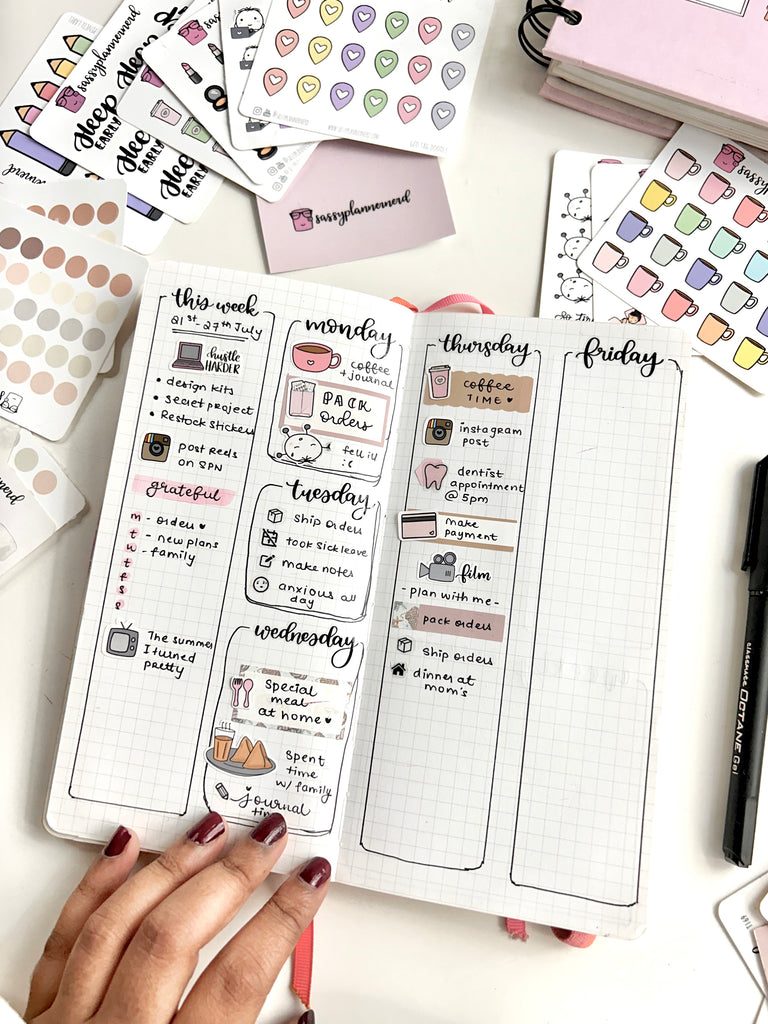 sassyplannernerd
Heep
EARLY
Heep
EARLY
Heep
EARLY
sassyplannernerd
this week
21st - 27th July
hustle
HARDER
• design kits
• secret project
• Restock stickers
post reels
on SPN
grateful
m - orders ♥
t - new plans
w - family
t
f
s
s
The summer
I turned
pretty
monday
coffee
+ journal
PACK
orders
fell ill
:(
tuesday
ship orders
took sick leave
make notes
anxious all
day
wednesday
Special
meal
at home ♥
Spent
time
w/ family
journal
time
thursday
coffee
TIME ♥
instagram
post
dentist
appointment
@ 5pm
make
payment
film
- plan with me -
pack orders
ship orders
dinner at
mom's
friday
OCTANE Gel